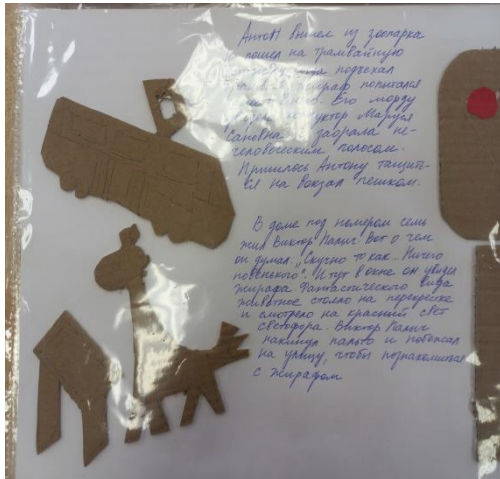 Антон вышел из зоопарка
и пошел на трамвайную
подъехал
жираф попытался
Его морду
Маруся
забрала не-
человеческим голосом.
Пришлось Антону тащить-
ся на вокзал пешком.
В доме под номером семь
жил Виктор Палыч. Вот о чем
он думал: „Скучно то как. Ничего
новенького". И тут в окне он увидел
жирафа. Фантастического вида
животное стояло на перекрёстке
и смотрело на красный свет
светофора. Виктор Палыч
накинул пальто и побежал
на улицу, чтобы познакомиться
с жирафом